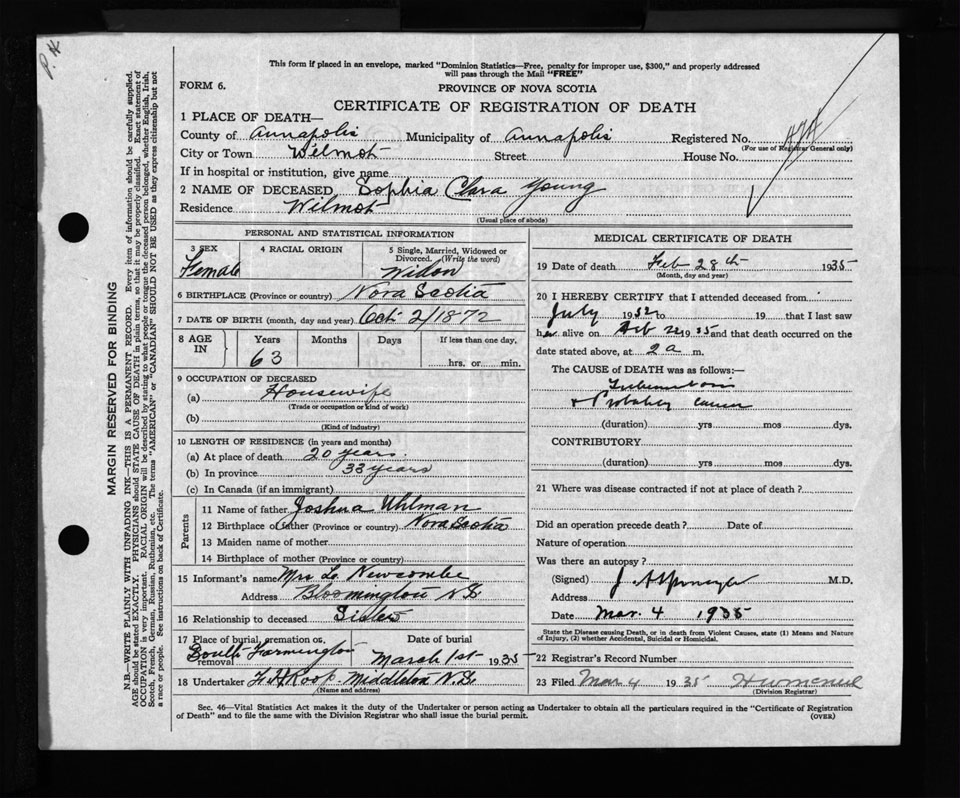 P. H.
This form if placed in an envelope, marked "Dominion Statistics—Free, penalty for improper use, $300," and properly addressed
will pass through the Mail "FREE"
FORM 6.
PROVINCE OF NOVA SCOTIA
CERTIFICATE OF REGISTRATION OF DEATH
1 PLACE OF DEATH—
County of Annapolis Municipality of Annapolis Registered No.
(For use of Registrar General only)
City or Town Wilmot Street House No.
If in hospital or institution, give name
2 NAME OF DECEASED Sophia Clara Young
Residence Wilmot
(Usual place of abode)
PERSONAL AND STATISTICAL INFORMATION
3 SEX 4 RACIAL ORIGIN 5 Single, Married, Widowed or
Divorced. (Write the word)
Female Widow
6 BIRTHPLACE (Province or country) Nova Scotia
7 DATE OF BIRTH (month, day and year) Oct 2/1872
8 AGE IN Years Months Days If less than one day,
63 hrs. or min.
9 OCCUPATION OF DECEASED
(a) Housewife
(Trade or occupation or kind of work)
(b)
(Kind of industry)
10 LENGTH OF RESIDENCE (in years and months)
(a) At place of death 20 years.
(b) In province 33 years
(c) In Canada (if an immigrant)
Parents
11 Name of father Joshua Uhlman
12 Birthplace of father (Province or country) Nova Scotia
13 Maiden name of mother
14 Birthplace of mother (Province or country)
15 Informant's name Mrs L. Newcombe
Address Bloomington N.S.
16 Relationship to deceased Sister
17 Place of burial, cremation or, Date of burial
removal South Farmington March 1st 1935
18 Undertaker Roop Middleton N.S.
(Name and address)
MEDICAL CERTIFICATE OF DEATH
19 Date of death Feb 28th 1935
(Month, day and year)
20 I HEREBY CERTIFY that I attended deceased from
July 1932 to 19 that I last saw
her alive on Feb 1935 and that death occurred on the
date stated above, at 2 a m.
The CAUSE of DEATH was as follows:—
Tuberculosis
+ Probably Cancer
(duration) yrs mos dys.
CONTRIBUTORY
(duration) yrs. mos dys.
21 Where was disease contracted if not at place of death?
Did an operation precede death? Date of
Nature of operation
Was there an autopsy?
(Signed) M.D.
Address
Date Mar. 4 1935
State the Disease causing Death, or in death from Violent Causes, state (1) Means and Nature
of Injury, (2) whether Accidental, Suicidal or Homicidal.
22 Registrar's Record Number
23 Filed Mar 4 1935
(Division Registrar)
Sec. 46—Vital Statistics Act makes it the duty of the Undertaker or person acting as Undertaker to obtain all the particulars required in the "Certificate of Registration
of Death" and to file the same with the Division Registrar who shall issue the burial permit.
(OVER)
MARGIN RESERVED FOR BINDING
N.B.—WRITE PLAINLY WITH UNFADING INK—THIS IS A PERMANENT RECORD. Every item of information should be carefully supplied.
AGE should be stated EXACTLY. PHYSICIANS should STATE CAUSE OF DEATH in plain terms, so that it may be properly classified. Exact statement of
OCCUPATION is very important. RACIAL ORIGIN will be described by stating to what people or tongue the deceased person belonged, whether English, Irish,
Scotch, French, German, Russian, Ruthenian, etc. The terms "AMERICAN" or "CANADIAN" SHOULD NOT BE USED as they express citizenship but not
a race or people. See instructions on back of Certificate.